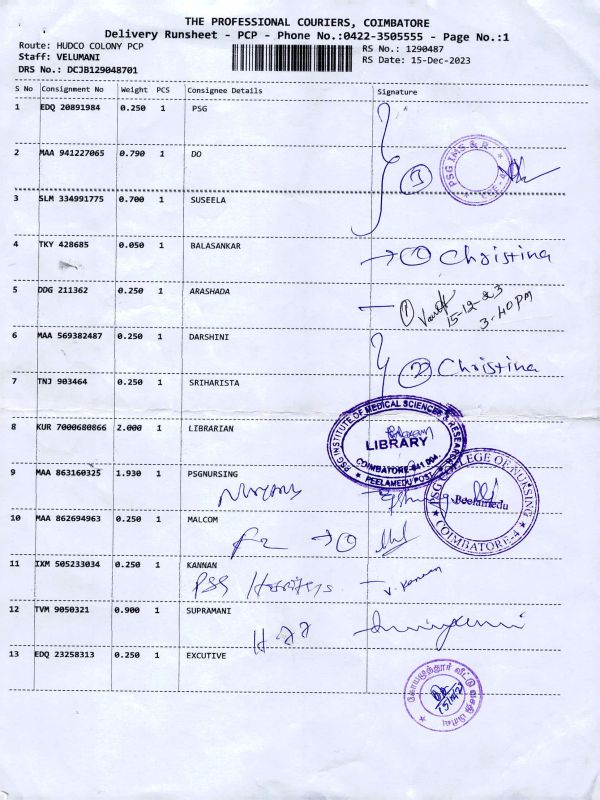 THE PROFESSIONAL COURIERS, COIMBATORE
Delivery Runsheet - PCP - Phone No.:0422-3505555 - Page No.:1
Route: HUDCO COLONY PCP
RS No.: 1290487
Staff: VELUMANI
RS Date: 15-Dec-2023
DRS No.: DCJB129048701
S No Consignment No Weight PCS Consignee Details Signature
1 EDQ 20891984 0.250 1 PSG
2 MAA 941227065 0.790 1 DO
3
PSG IMS & R
3 SLM 334991775 0.700 1 SUSEELA
4 TKY 428685 0.050 1 BALASANKAR
1 Christina
5 DDG 211362 0.250 1 ARASHADA
1
15-12-23
3.40 PM
6 MAA 569382487 0.250 1 DARSHINI
2 Christina
7 TNJ 903464 0.250 1 SRIHARISTA
8 KUR 7000680866 2.000 1 LIBRARIAN
PSG INSTITUTE OF MEDICAL SCIENCES & RESEARCH
LIBRARY
COIMBATORE-641 004.
PEELAMEDU POST
9 MAA 863160325 1.930 1 PSGNURSING
PSG COLLEGE OF NURSING
Peelamedu
COIMBATORE-4
10 MAA 862694963 0.250 1 MALCOM
1
11 IXM 505233034 0.250 1 KANNAN
PSG
V. Kannan
12 TVM 9050321 0.900 1 SUPRAMANI
13 EDQ 23258313 0.250 1 EXCUTIVE
கோயமுத்தூர் வீட்டு வசதி பிரிவு